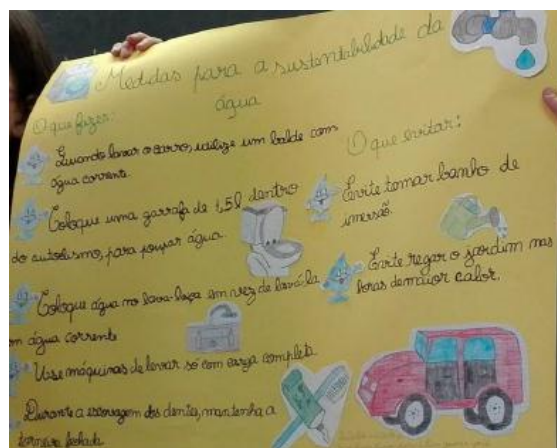 Medidas para a sustentabilidade da
água
O que fazer:
Quando lavar o carro, utilize um balde com
água corrente.
Coloque uma garrafa de 1,5l dentro
do autoclismo, para poupar água
Coloque água no lava-loiça em vez de lavá-la
em água corrente
Use máquinas de lavar só com carga completa
Durante a escovagem dos dentes, mantenha a
torneira fechada
O que evitar:
Evite tomar banho de
imersão.
Evite regar o jardim nas
horas de maior calor.